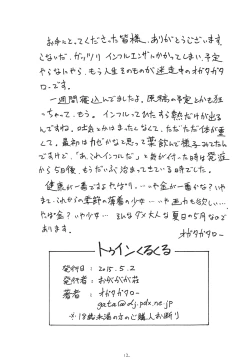 お手にとってくださった皆様、ありがとうございます。
こないだ、ガッツリ インフルエンザにかかってしまい、予定
やらなんやら、もう人生そのものが迷走中のオガタガタ
ローです。
一週間寝込んでましたよ。原稿の予定とかも狂
っちゃって、もう。インフルってひたすら熱だけが出る
んですね。咳とかはまったくなくて、ただただ体が重
くて。最初はカゼかなと思って薬飲んで様子みてたん
ですけど、「あ、これインフルだ」って気が付いた時は発症
から5日後、もうだいぶ治まってきている時でした。
健康が一番ですよやっぱり。…いや金が一番かな?いや
まて、これからの季節の薄着の少女…いや画力も欲しい…
やば金?いや少女… そんなダメ大人な夏日の5月なので
あります。
オガタガタロー
トゥインくるくる
発行日:2015.5.2
発行者:おがくがが荘
著者 :オガタガタロー
gata@dj.pdx.ne.jp
*18歳未満の方のご購入お断り
12